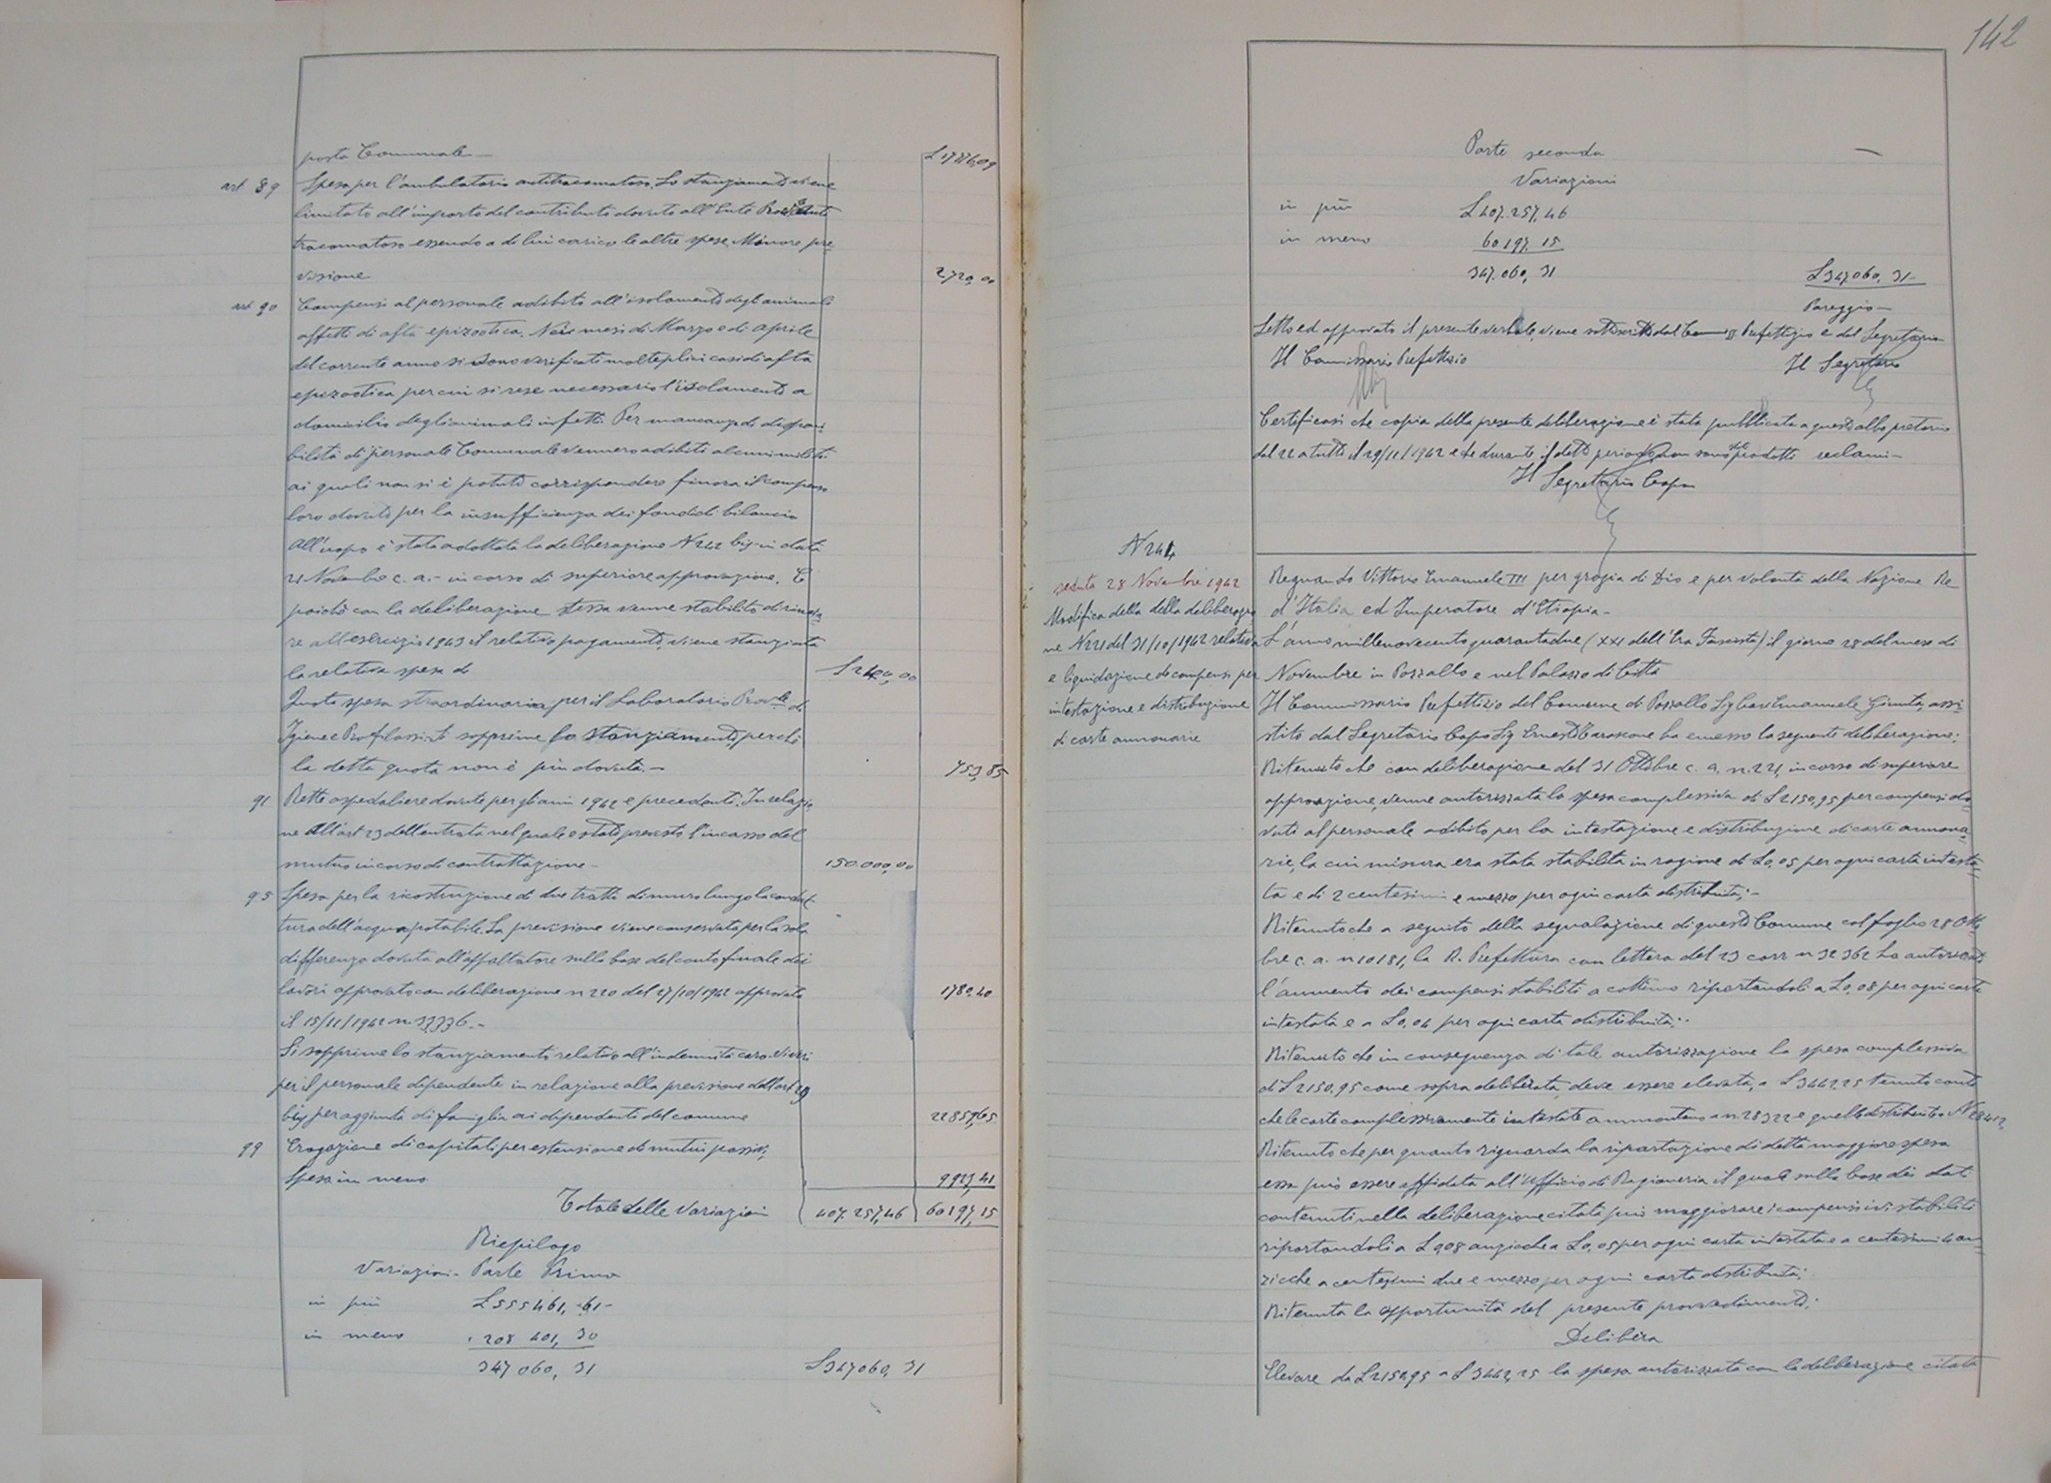 posta Comunale
art 89 Spesa per l'ambulatorio antitracomatoso. Lo stanziamento viene
limitato all'importo del contributo dovuto all'Ente
tracomatoso essendo a di lui carico le altre spese. Minore pre=
visione 2720,00
art 90 Compensi al personale adibito all'isolamento degli animali
affetti di afta epizootica. Nei mesi di Marzo e di Aprile
del corrente anno si sono verificati molteplici casi di afta
epizootica per cui si rese necessario l'isolamento a
domicilio degli animali infetti. Per mancanza di disponi=
bilità di personale Comunale vennero adibiti alcuni militi
ai quali non si è potuto corrispondere finora il compenso
loro dovuto per la insufficienza dei fondi di bilancio
All'uopo è stata adottata la deliberazione N 242 bis in data
21 Novembre c. a. - in corso di superiore approvazione. E
poichè con la deliberazione stessa venne stabilito di rinvia=
re all'esercizio 1943 il relativo pagamento, viene stanziata
la relativa spesa di
Quota spesa straordinaria per il Laboratorio Prov.le di
Igiene e Profilassi. Si sopprime lo stanziamento, perchè
la detta quota non è più dovuta. - 753,85
91 Rette ospedaliere dovute per gli anni 1942 e precedenti. In relazio
ne all'art 23 dell'entrata nel quale è stato previsto l'incasso del
mutuo in corso di contrattazione - 150.000,00
95 Spesa per la ricostruzione di due tratti di muro lungo la condut=
tura dell'acqua potabile. La previsione viene conservata per la sola
differenza dovuta all'appaltatore sulla base del conto finale dei
lavori approvato con deliberazione n 220 del 27/10/1942 approvata 1780,40
il 15/11/1942 n 33336. -
Si sopprime lo stanziamento relativo all'indennità caro-viveri
per il personale dipendente in relazione alla previsione dell'art 29
bis per aggiunta di famiglia ai dipendenti del comune 22859,65
99 Erogazione di capitali per estensione di mutui passivi,
Spesa in meno 9923,41
Totale delle Variazioni 407.257,46 60197,15
Riepilogo
Variazioni - Parte Prima
in più L 555461,-61-
in meno 208 401, 30
347 060, 31 L 347060, 31
142
Parte seconda
Variazioni
in più L 407.257,46
in meno 60 197, 15
347.060, 31 L 347.060, 31-
Pareggio -
Letto ed approvato il presente verbale, viene sottoscritto dal Comm Prefettizio e dal Segretario
Il Commissario Prefettizio Il Segretario
Certificasi che copia della presente deliberazione è stata pubblicata a questo albo pretorio
dal 22 a tutto il 29/11/1942 e che durante il detto periodo non sono stati prodotti reclami -
Il Segretario Capo
N 244
seduta 28 Novembre 1942
Modifica della della deliberazio
ne N 221 del 31/10/1942 relativa
e liquidazione di compensi per
intestazione e distribuzione
di carte annonarie
Regnando Vittorio Emanuele III per grazia di Dio e per volontà della Nazione Re
d'Italia ed Imperatore d'Etiopia -
L'anno millenovecento quarantadue (XXI dell'Era Fascista) il giorno 28 del mese di
Novembre in Pozzallo e nel Palazzo di Città
Il Commissario Prefettizio del Comune di Pozzallo Sig Cav Emanuele Giunta, assi=
stito dal Segretario Capo Sig Ernesto Carascone ha emesso la seguente deliberazione:
Ritenuto che con deliberazione del 31 Ottobre c. a. n. 221, in corso di superiore
approvazione, venne autorizzata la spesa complessiva di L 2150,95 per compensi do=
vuti al personale adibito per la intestazione e distribuzione di carte annona=
rie, la cui misura era stata stabilita in ragione di L 0,05 per ogni carta intesta=
ta e di 2 centesimi e mezzo per ogni carta distribuita; -
Ritenuto che a seguito della segnalazione di questo Comune col foglio 28 Otto
bre c. a. n 10181, la R. Prefettura con lettera del 23 corr n 32362 ha autorizzato
l'aumento dei compensi stabiliti a cottimo riportandoli a L 0,08 per ogni carta
intestata e a L 0,04 per ogni carta distribuita; -
Ritenuto che in conseguenza di tale autorizzazione la spesa complessiva
di L 2150,95 come sopra deliberata, deve essere elevata, a L 3442,25 tenuto conto
che le carte complessivamente intestate ammontano a n 28322 e quelle distribuite a N 29412,
Ritenuto che per quanto riguarda la ripartizione di detta maggiore spesa
essa può essere affidata all'Ufficio di Ragioneria il quale sulla base dei dati
contenuti nella deliberazione citata può maggiorare i compensi ivi stabiliti
riportandoli a L 0,08 anzichè a L 0,05 per ogni carta intestata e a centesimi 4 an=
zicchè a centesimi due e mezzo per ogni carta distribuita;
Ritenuta la opportunità del presente provvedimento;
Delibera
Elevare da L 2150,95 a L 3442,25 la spesa autorizzata con la deliberazione citata